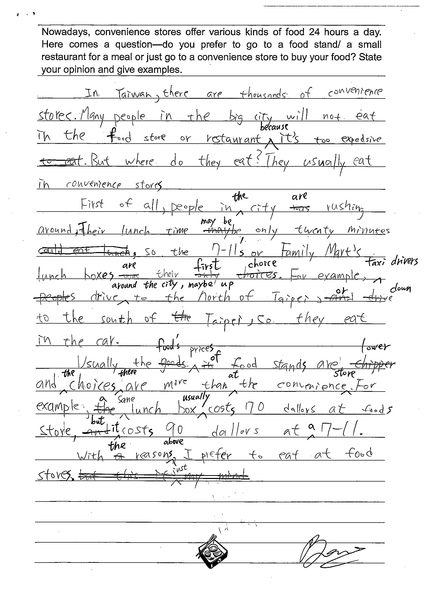 Nowadays, convenience stores offer various kinds of food 24 hours a day.
Here comes a question—do you prefer to go to a food stand/ a small
restaurant for a meal or just go to a convenience store to buy your food? State
your opinion and give examples.
In Taiwan, there are thousands of convenience
stores. Many people in the big city will not eat
because
in the food store or restaurant it's too expensive
to eat. But where do they eat? They usually eat
in convenience stores
First of all, people in the city are has rushing
around, Their lunch time may be maybe only twenty minutes
could eat lunch, so the 7-11's or Family Mart's
taxi drivers
lunch boxes are their first choice choices. For example,
around the city, maybe up
peoples drive to the North of Taipei, or and drive down
to the south of the Taipei, so they eat
in the car.
Usually the food's goods prices of food stands are lower chipper
and the choices there are more than at the convenience store. For
example, the a same lunch box usually costs 70 dallors at foods
store, but it costs 90 dallors at a 7-11.
With the above reasons, I prefer to eat at food
stores. but this is just my mind